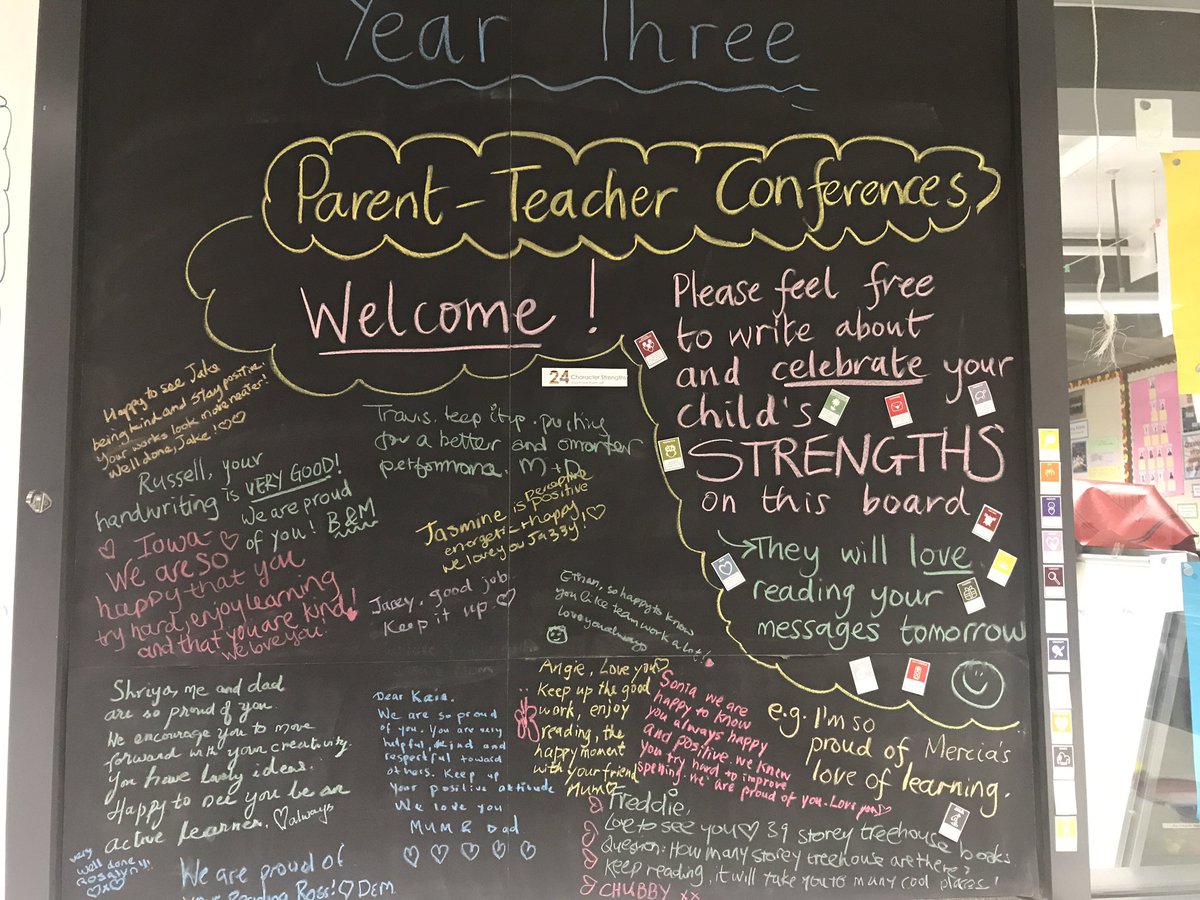 Year Three
Parent-Teacher Conferences
Welcome!
Please feel free
to write about
and celebrate your
child's
STRENGTHS
on this board
They will love
reading your
messages tomorrow
e.g. I'm so
proud of Mercia's
love of learning.
24 Character Strengths
Happy to see Jake
being kind and stay positive.
Your works look more neater!
Well done, Jake!
Russell, your
handwriting is VERY GOOD!
We are proud
of you! B&M
Iowa
We are so
happy that you
try hard, enjoy learning
and that you are kind!
We love you.
Travis, keep it up, pushing
for a better and smarter
performance. M+D
Jasmine is perceptive
positive
energetic + happy
We love you Jazzy!
Jacey, good job.
Keep it up.
Ethan, so happy to know
you like team work a lot!
Love you always
Shriya, me and dad
are so proud of you
We encourage you to move
forward with your creativity.
You have lovely ideas.
Happy to see you be an
active learner. always
very
well done!!!
Rosalyn
x
We are proud of
Reading Ross! DEM
Dear
We are so proud
of you. You are very
helpful, kind and
respectful toward
others. Keep up
your positive attitude
We love you
Mum & Dad
Angie, Love you
Keep up the good
work, enjoy
reading, the
happy moment
with your friend
Mum
Sonia we are
happy to know
you always happy
and positive. We knew
you try hard to improve
spelling. We are proud of you. Love you
Freddie,
Love to see you 39 storey treehouse books
Question: How many storey treehouse are there?
Keep reading, it will take you to many cool places!
CHUBBY xx